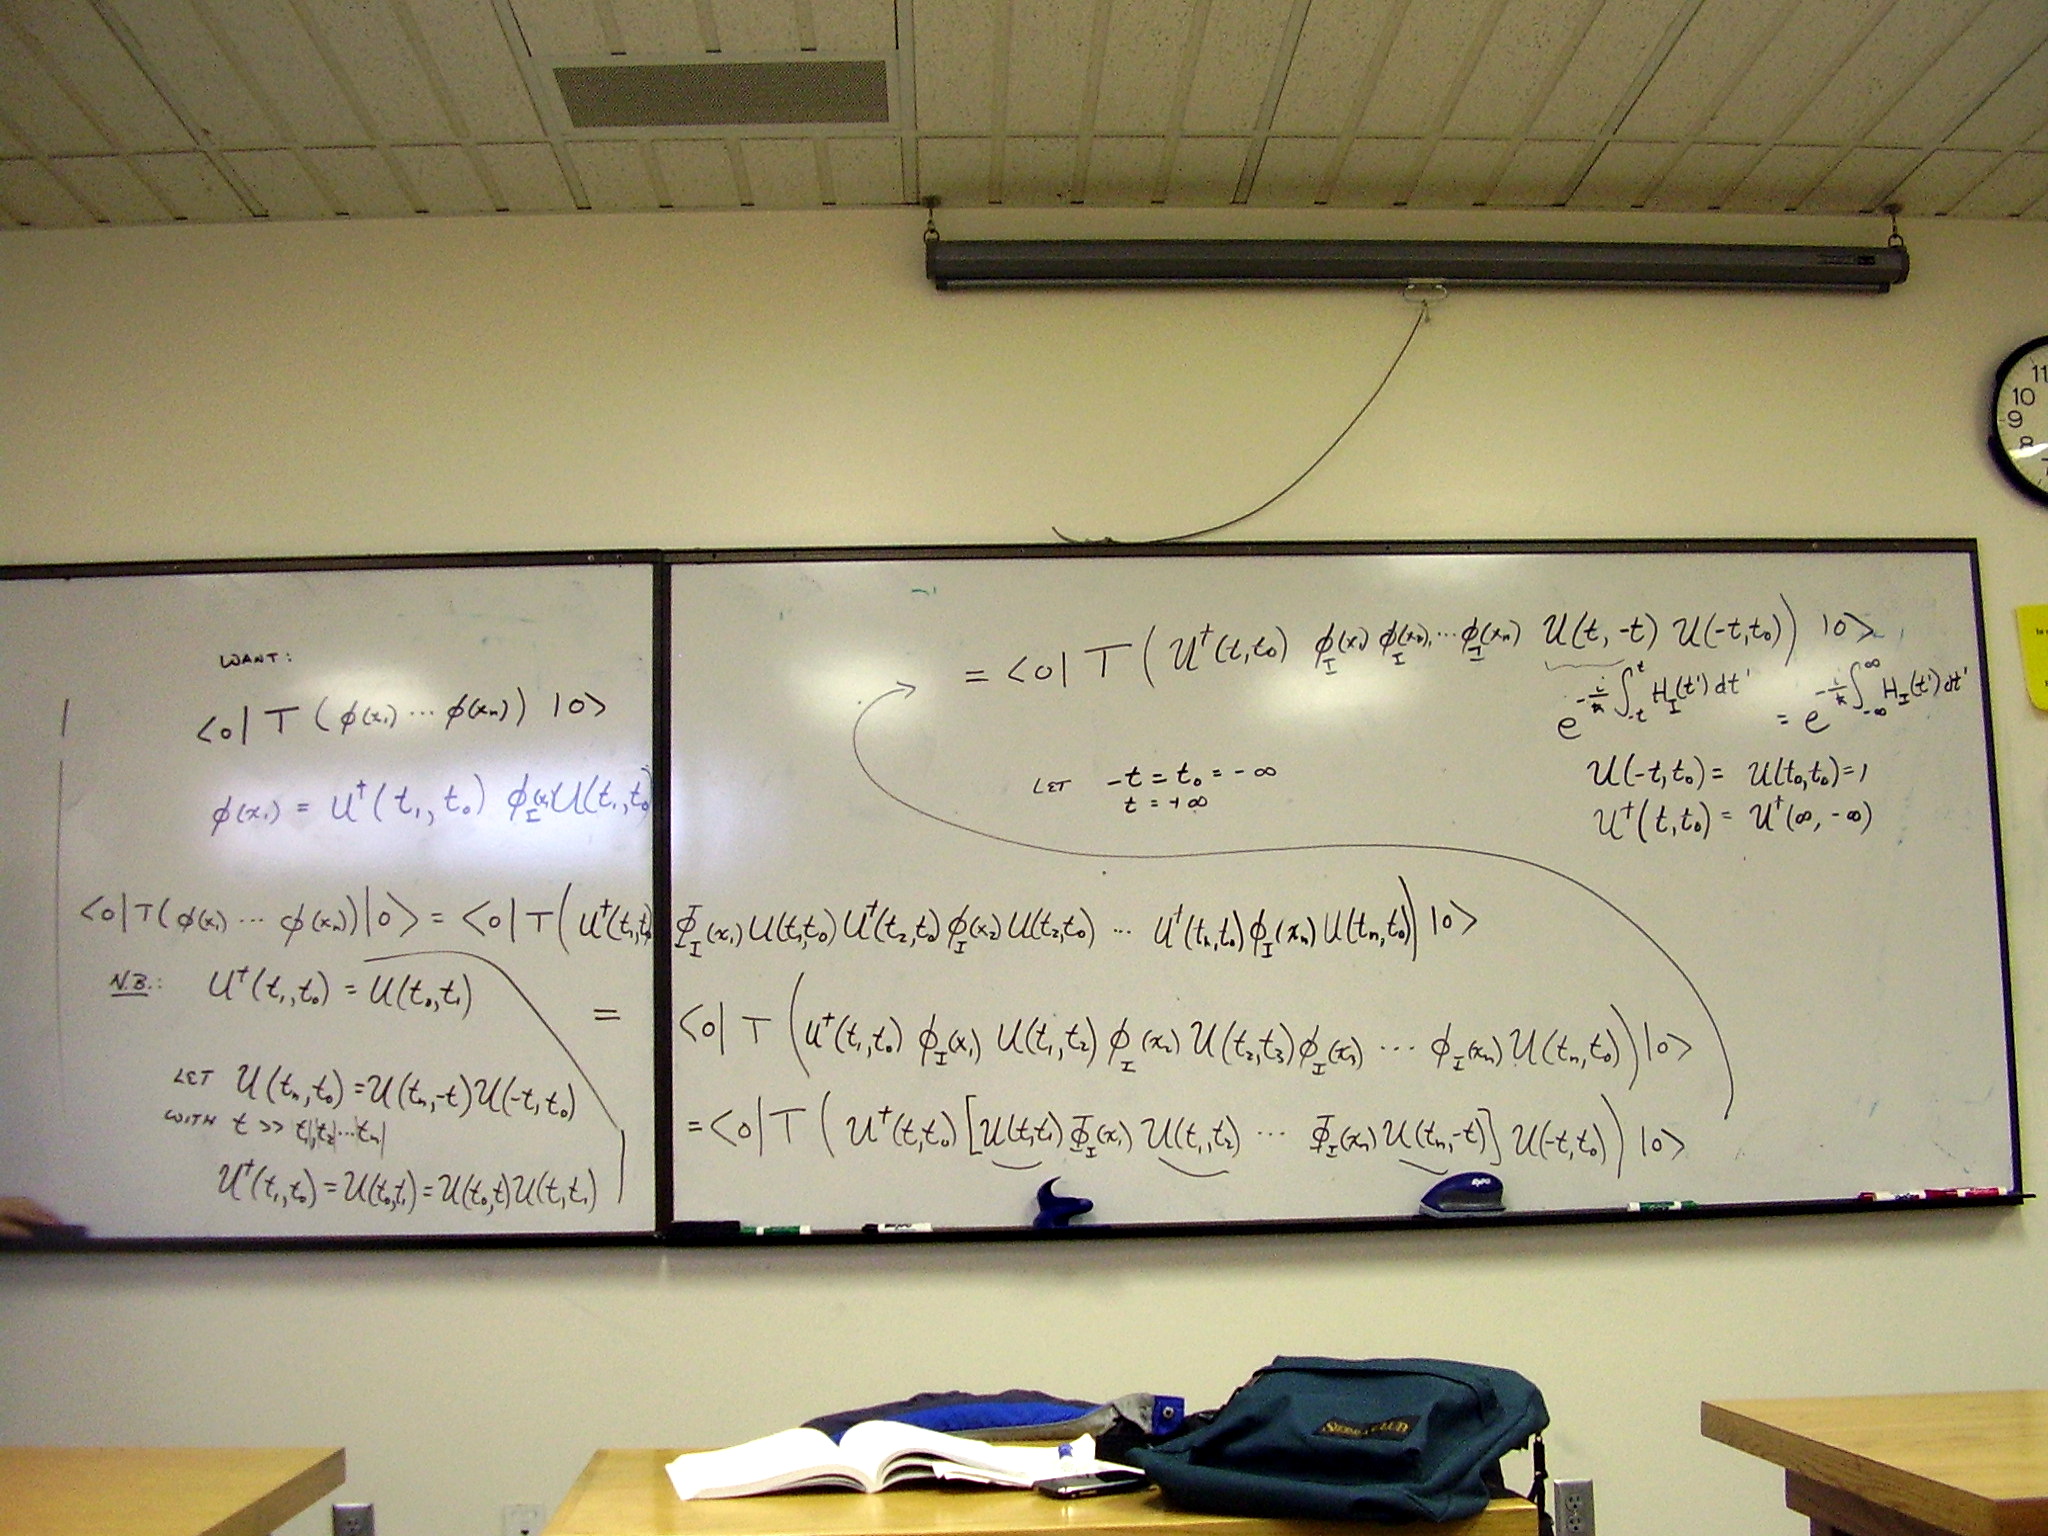 WANT:
<0| T (ϕ(x₁) ··· ϕ(xₙ)) |0>
ϕ(x₁) = U†(t₁, t₀) ϕ_I(x₁) U(t₁, t₀)
<0|T(ϕ(x₁) ··· ϕ(xₙ))|0> = <0|T(U†(t₁,t₀) Φ_I(x₁) U(t₁,t₀) U†(t₂,t₀) ϕ_I(x₂) U(t₂,t₀) ··· U†(tₙ,t₀) ϕ_I(xₙ) U(tₙ,t₀))|0>
N.B.: U†(t₁,t₀) = U(t₀,t₁)
= <0| T (U†(t₁,t₀) ϕ_I(x₁) U(t₁,t₂) ϕ_I(x₂) U(t₂,t₃) ϕ_I(x₃) ··· ϕ_I(xₙ) U(tₙ,t₀))|0>
LET U(tₙ,t₀) = U(tₙ,-t) U(-t,t₀)
WITH t >> t₁|,|t₂|···tₙ|
U†(t₁,t₀) = U(t₀,t₁) = U(t₀,t) U(t,t₁)
= <0| T ( U†(t,t₀) [U(t,t₁) Φ_I(x₁) U(t₁,t₂) ··· Φ_I(xₙ) U(tₙ,-t)] U(-t,t₀)) |0>
= <0| T ( U†(t,t₀) ϕ_I(x₁) ϕ_I(x₂) ··· ϕ_I(xₙ) U(t,-t) U(-t,t₀)) |0>
e^{-i/ħ ∫_{-t}^{t} H_I(t') dt'} = e^{-i/ħ ∫_{-∞}^{∞} H_I(t') dt'}
LET -t = t₀ = -∞
t = +∞
U(-t,t₀) = U(t₀,t₀) = 1
U†(t,t₀) = U†(∞,-∞)
11
10
9
8
7
EXPO
SIERRA CLUB